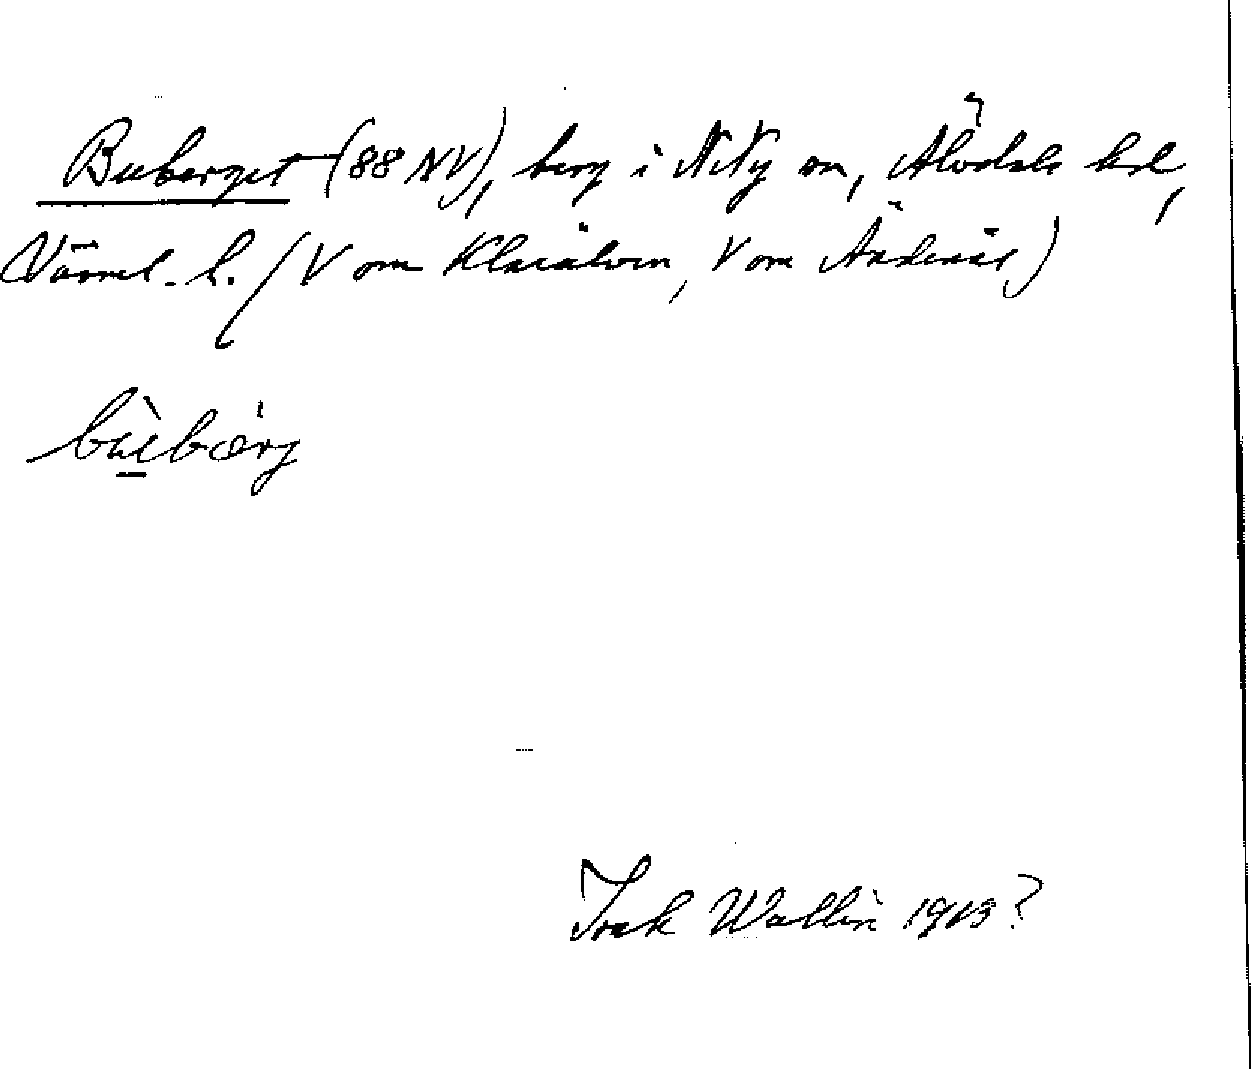 Buberget (88 NV), berg i N Ny sn, Älvdals hd,
Värml. l. (V om Klarälven, V om Åsteräs)
bùbærj
Isak Wallin 1913?